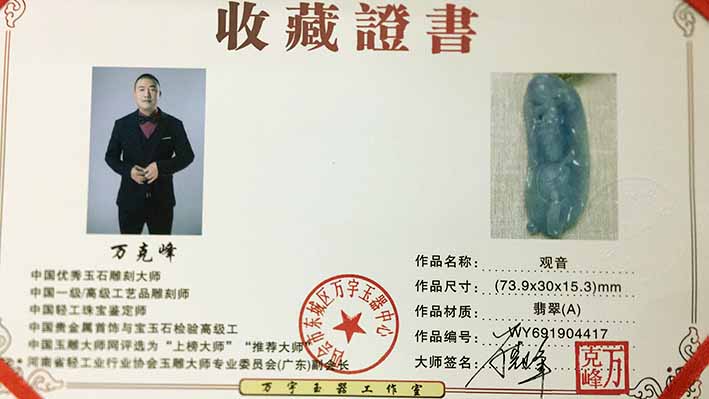 收藏證書
万克峰
中国优秀玉石雕刻大师
中国一级/高级工艺品雕刻师
中国轻工珠宝鉴定师
中国贵金属首饰与宝玉石检验高级工
中国玉雕大师网评选为“上榜大师”“推荐大师”
河南省轻工业行业协会玉雕大师专业委员会(广东)副会长
作品名称： 观音
作品尺寸： (73.9x30x15.3)mm
作品材质： 翡翠(A)
作品编号： WY691904417
大师签名：
万克峰
市东城区万宇玉器中心
万宇玉器工作室